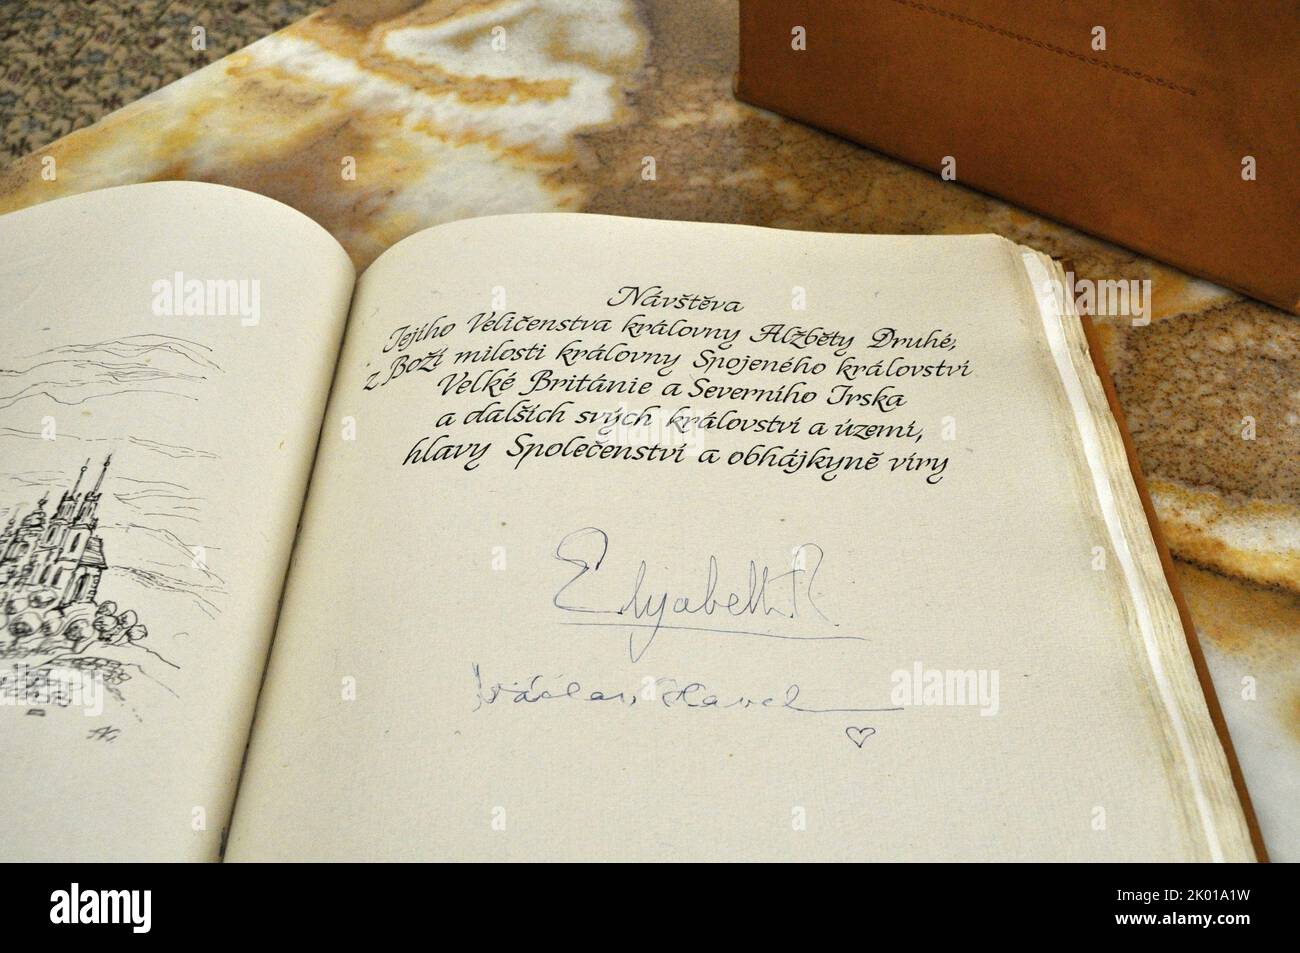 Návštěva
Jejího Veličenstva královny Alžběty Druhé,
z Boží milosti královny Spojeného království
Velké Británie a Severního Irska
a dalších svých království a území,
hlavy Společenství a obhájkyně víry
Elizabeth R
Václav Havel
AK
alamy
alamy
Image ID: 2K01A1W
www.alamy.com